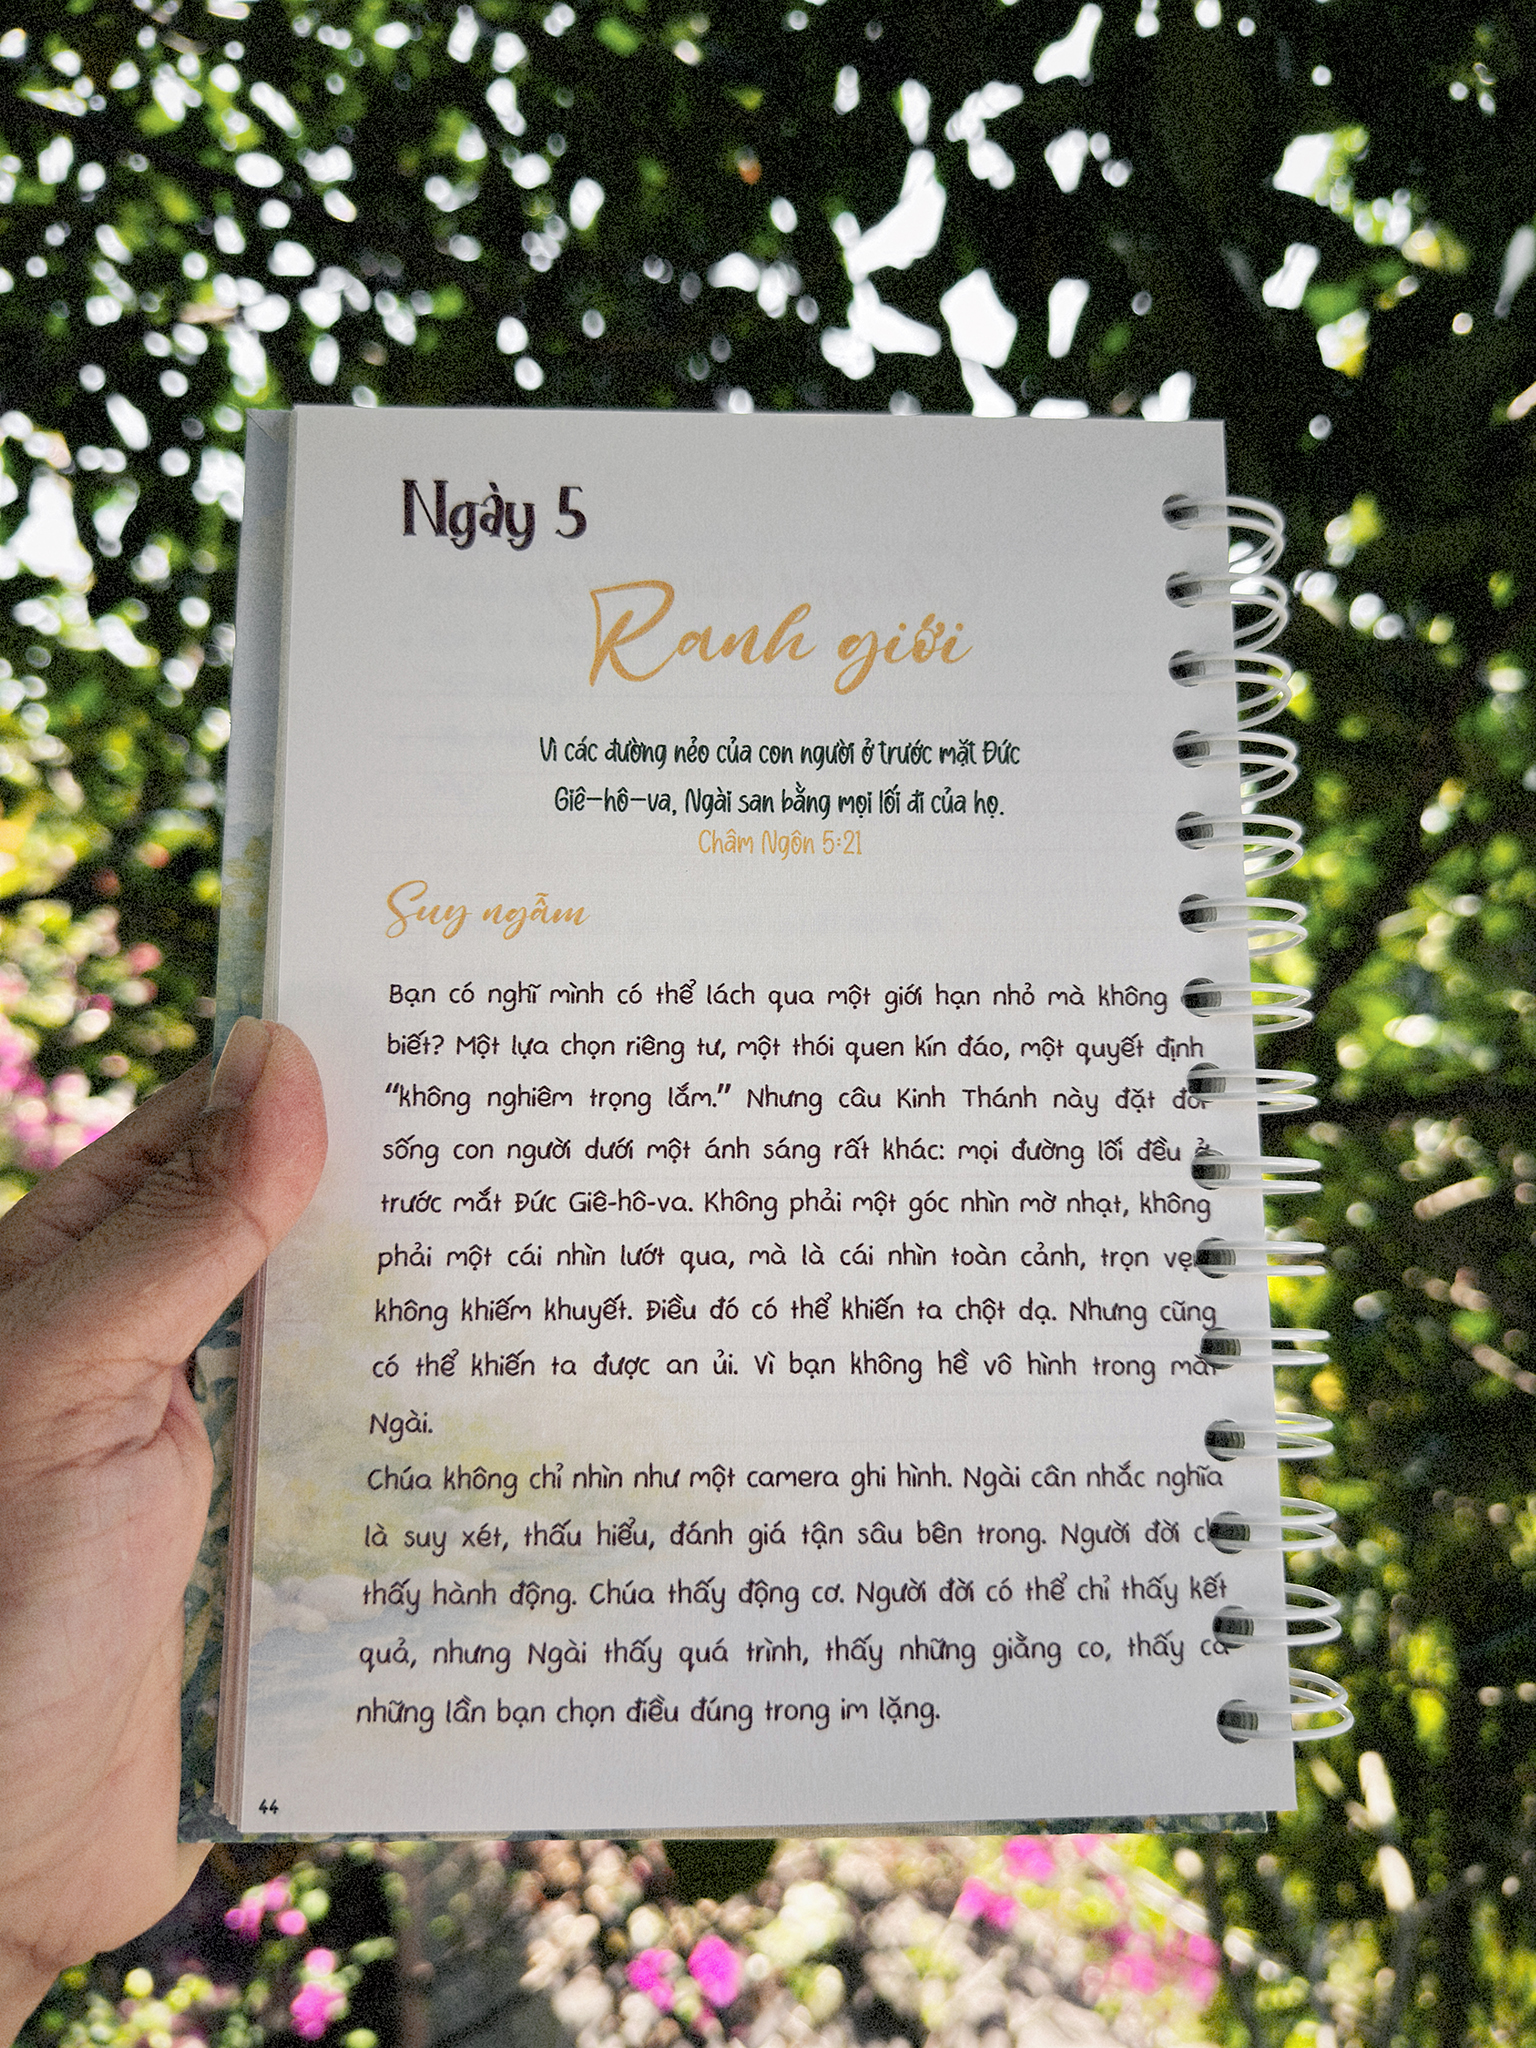 Ngày 5
Ranh giới
Vì các đường nẻo của con người ở trước mặt Đức
Giê-hô-va, Ngài san bằng mọi lối đi của họ.
Châm Ngôn 5:21
Suy ngẫm
Bạn có nghĩ mình có thể lách qua một giới hạn nhỏ mà không
biết? Một lựa chọn riêng tư, một thói quen kín đáo, một quyết định
“không nghiêm trọng lắm.” Nhưng câu Kinh Thánh này đặt đời
sống con người dưới một ánh sáng rất khác: mọi đường lối đều ở
trước mắt Đức Giê-hô-va. Không phải một góc nhìn mờ nhạt, không
phải một cái nhìn lướt qua, mà là cái nhìn toàn cảnh, trọn vẹn
không khiếm khuyết. Điều đó có thể khiến ta chột dạ. Nhưng cũng
có thể khiến ta được an ủi. Vì bạn không hề vô hình trong mắt
Ngài.
Chúa không chỉ nhìn như một camera ghi hình. Ngài cân nhắc nghĩa
là suy xét, thấu hiểu, đánh giá tận sâu bên trong. Người đời
thấy hành động. Chúa thấy động cơ. Người đời có thể chỉ thấy kết
quả, nhưng Ngài thấy quá trình, thấy những giằng co, thấy cả
những lần bạn chọn điều đúng trong im lặng.
44